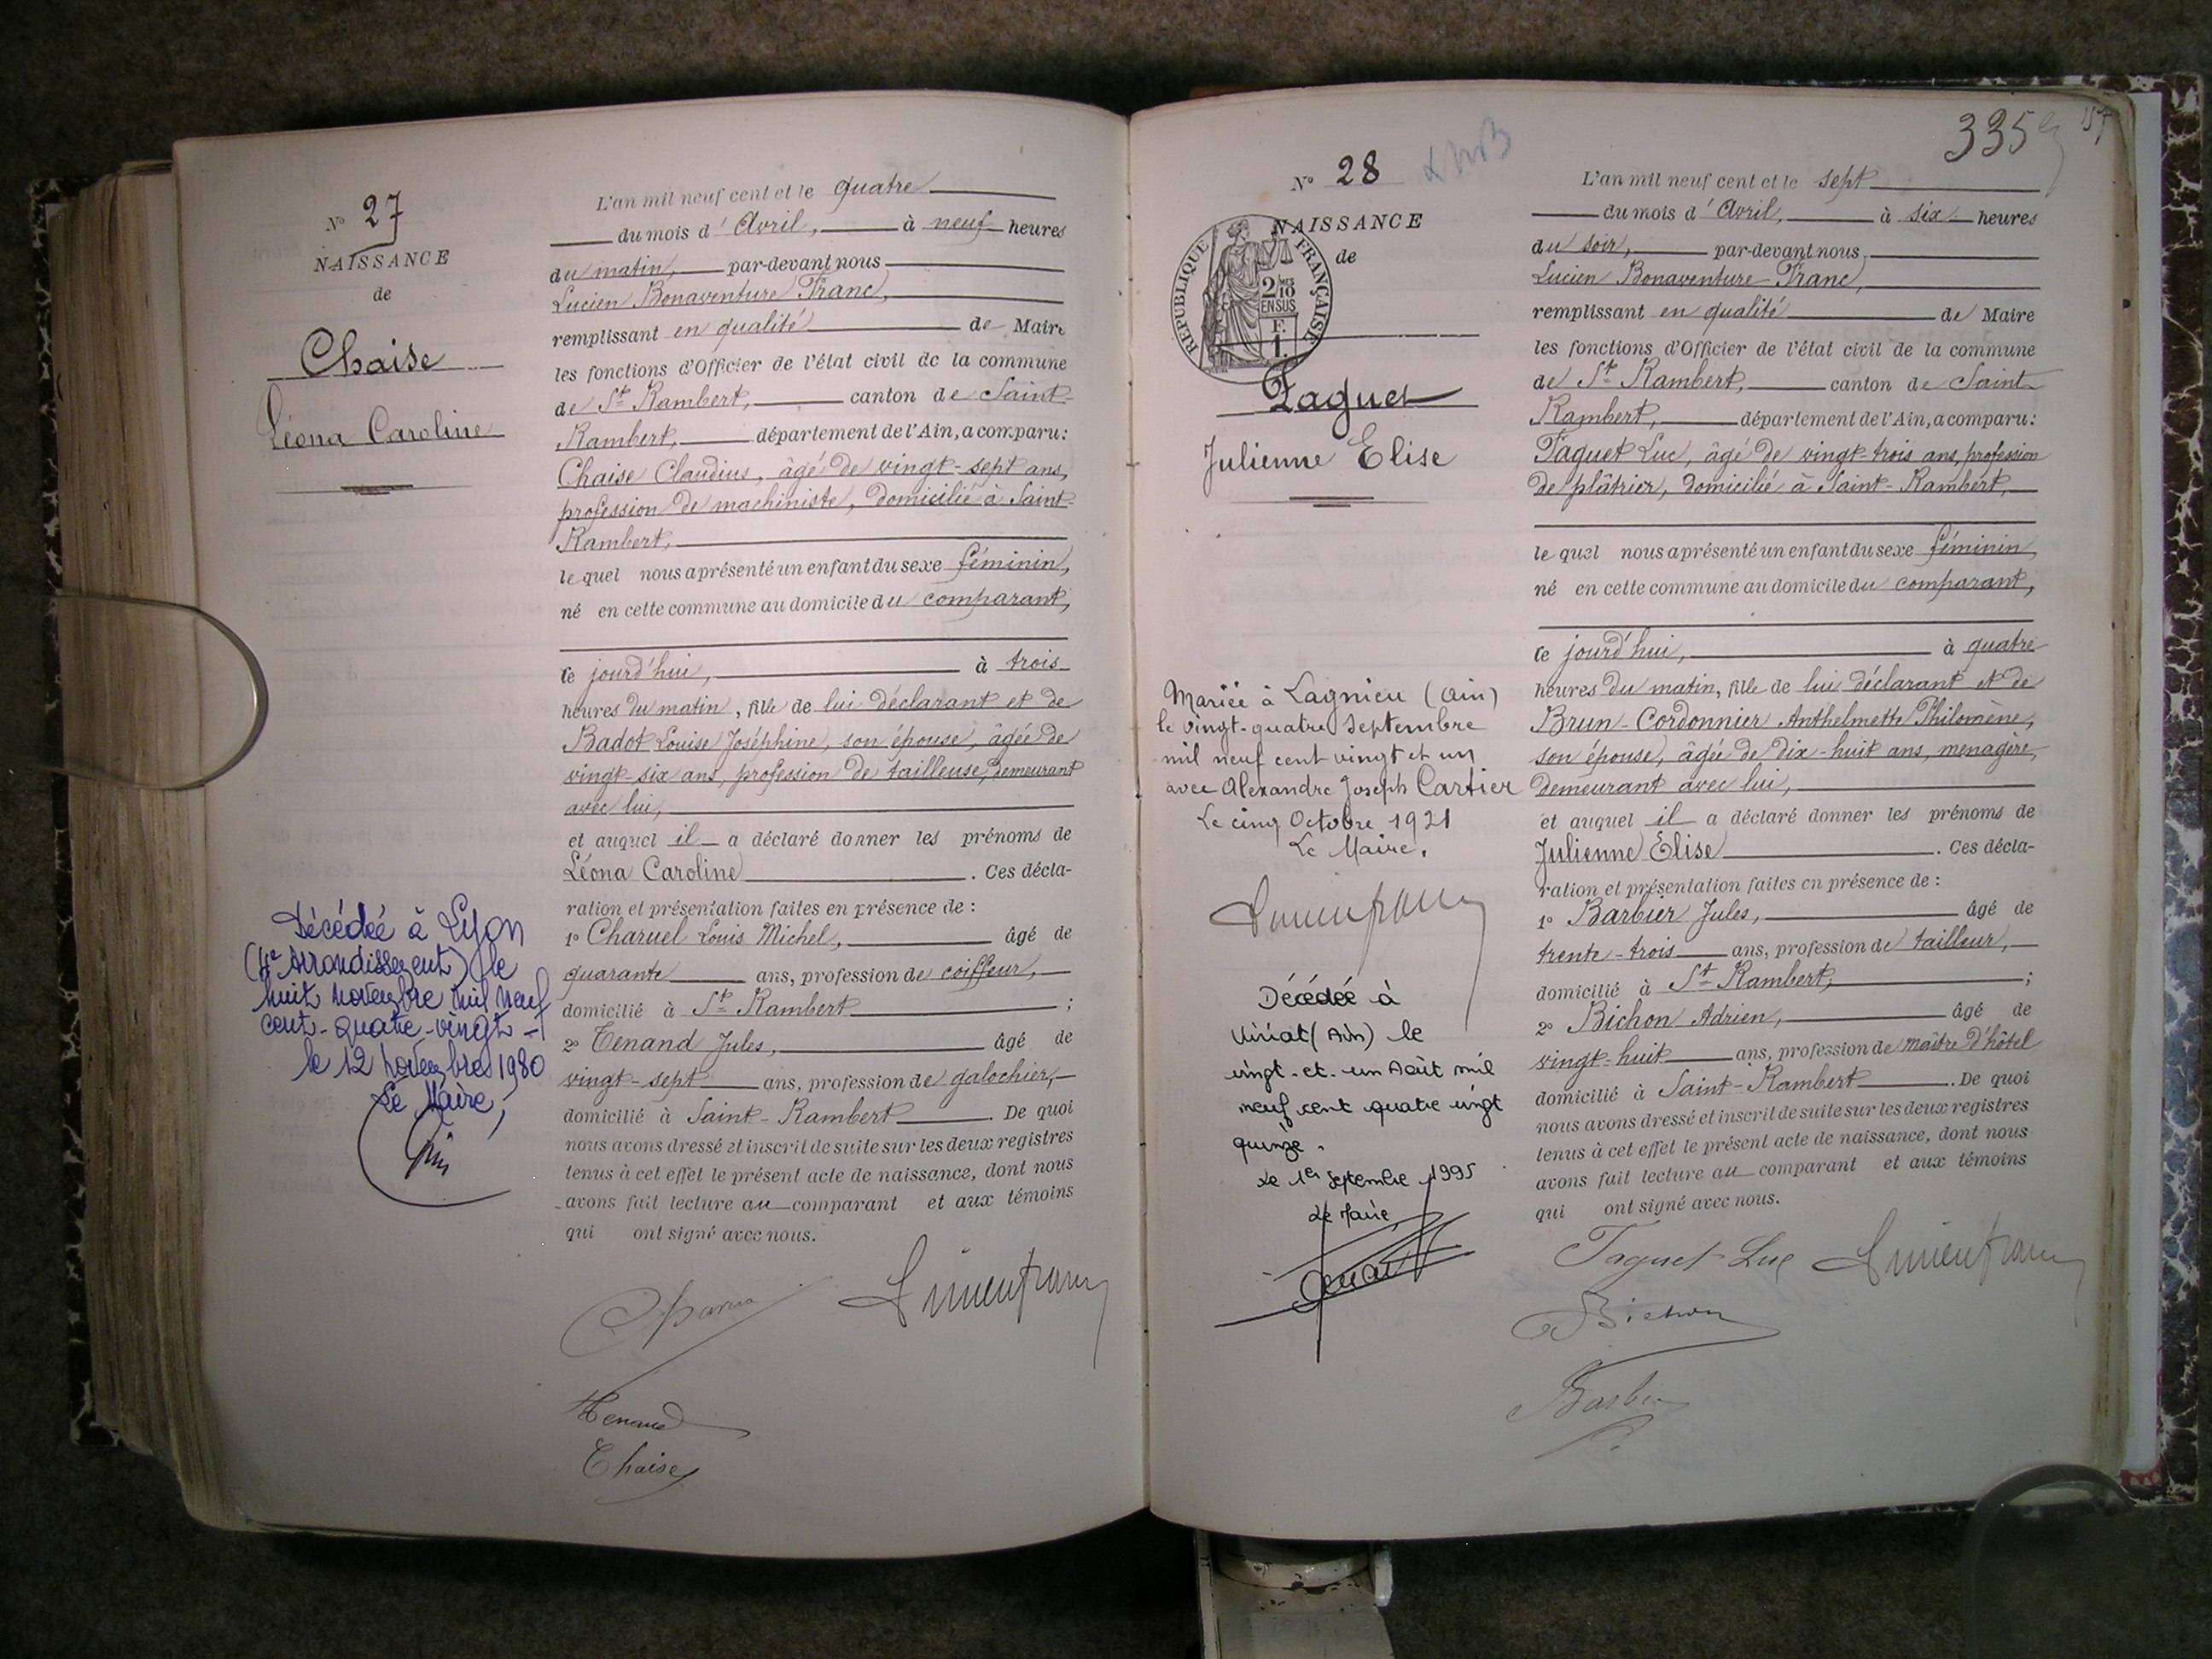 N° 27
NAISSANCE
de
Chaise
Léona Caroline
Décédée à Lyon
(4e Arrondissement) le
huit novembre mil neuf
cent-quatre-vingt
le 12 novembre 1980
Le Maire,
L'an mil neuf cent et le quatre
du mois d'Avril, à neuf heures
du matin, par-devant nous
Lucien Bonaventure Franc,
remplissant en qualité de Maire
les fonctions d'Officier de l'état civil de la commune
de St Rambert, canton de Saint-
Rambert, département de l'Ain, a comparu:
Chaise Claudius, âgé de vingt-sept ans,
profession de machiniste, domicilié à Saint-
Rambert,
le quel nous a présenté un enfant du sexe féminin,
né en cette commune au domicile du comparant,
ce jourd'hui, à trois
heures du matin, fille de lui déclarant et de
Badot Louise Joséphine, son épouse, âgée de
vingt-six ans, profession de tailleuse, demeurant
avec lui,
et auquel il a déclaré donner les prénoms de
Léona Caroline. Ces décla-
ration et présentation faites en présence de :
1° Charuel Louis Michel, âgé de
quarante ans, profession de coiffeur,
domicilié à St Rambert ;
2° Tenand Jules, âgé de
vingt-sept ans, profession de galochier,
domicilié à Saint-Rambert. De quoi
nous avons dressé et inscrit de suite sur les deux registres
tenus à cet effet le présent acte de naissance, dont nous
avons fait lecture au comparant et aux témoins
qui ont signé avec nous.
Tenand
Chaise
335
157
N° 28
NAISSANCE
de
REPUBLIQUE FRANÇAISE
2/10 MES
EN SUS
F.
1.
Paguet
Julienne Elise
Mariée à Lagnieu (Ain)
le vingt-quatre Septembre
mil neuf cent vingt et un
avec Alexandre Joseph Cartier
Le cinq Octobre 1921
Le Maire.
Décédée à
Viriat (Ain) le
vingt-et-un Août mil
neuf cent quatre vingt
quinze.
Le 1er Septembre 1995
Le Maire
L'an mil neuf cent et le sept
du mois d'Avril, à six heures
du soir, par-devant nous
Lucien Bonaventure Franc,
remplissant en qualité de Maire
les fonctions d'Officier de l'état civil de la commune
de St Rambert, canton de Saint-
Rambert, département de l'Ain, a comparu:
Paguet Luc, âgé de vingt-trois ans, profession
de plâtrier, domicilié à Saint-Rambert,
le quel nous a présenté un enfant du sexe féminin
né en cette commune au domicile du comparant,
ce jourd'hui, à quatre
heures du matin, fille de lui déclarant et de
Brun-Cordonnier Anthelmette Philomène,
son épouse, âgée de dix-huit ans, menagère,
demeurant avec lui,
et auquel il a déclaré donner les prénoms de
Julienne Elise. Ces décla-
ration et présentation faites en présence de :
1° Barbier Jules, âgé de
trente-trois ans, profession de tailleur,
domicilié à St Rambert, ;
2° Bichon Adrien, âgé de
vingt-huit ans, profession de maître d'hôtel
domicilié à Saint-Rambert. De quoi
nous avons dressé et inscrit de suite sur les deux registres
tenus à cet effet le présent acte de naissance, dont nous
avons fait lecture au comparant et aux témoins
qui ont signé avec nous.
Paguet Luc
Bichon
Barbier